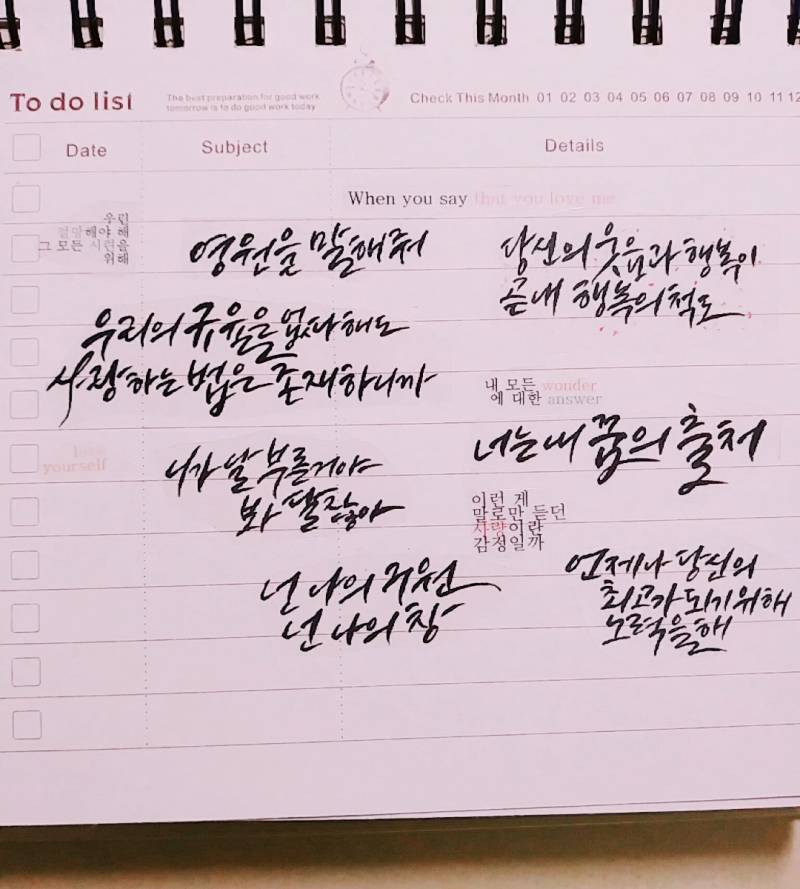 To do list
The best preparation for good work
tomorrow is to do good work today
Check This Month 01 02 03 04 05 06 07 08 09 10 11 12
Date Subject Details
When you say that you love me
우린
절망해야 해
그 모든 시련을
위해
영원을 말해줘
당신의 웃음과 행복이
곧 내 행복의 척도
우리의 규율을 없다해도
사랑하는 법은 존재하니까
내 모든 wonder
에 대한 answer
너는 내 꿈의 출처
love
yourself
니가 날 부른거야
봐 달잖아
이런 게
말로만 듣던
사랑이란
감정일까
넌 나의 구원
넌 나의 창
언제나 당신의
최고가 되기 위해
노력을 해